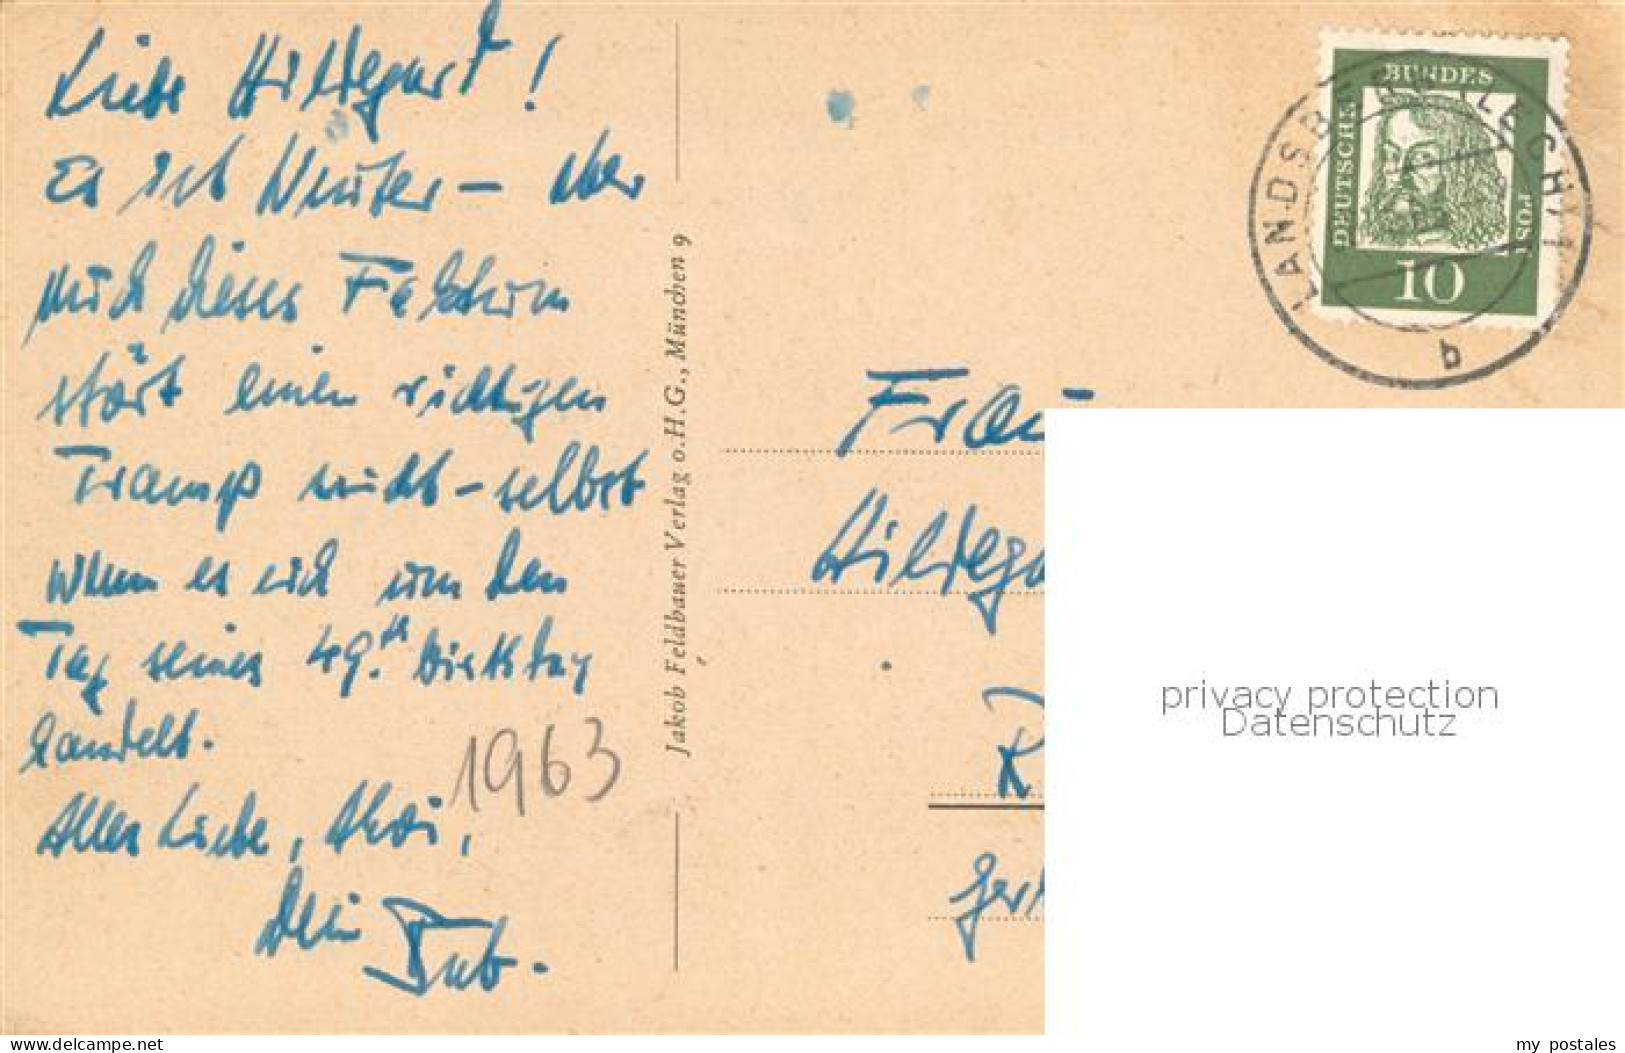 Liebe Hildegard!
Es ist Winter – aber
auch dieses Faktum
stört einen richtigen
Tramp nicht – selbst
wenn es sich um den
Tag seines 49.ten
handelt.
1963
Alles Liebe, Ahoi,
Dein
Jakob Feldbauer Verlag o.H.G., München 9
DEUTSCHE BUNDESPOST
10
LANDSBERG (LECH)
b
Frau
privacy protection
Datenschutz
delcampe.net
my_postales